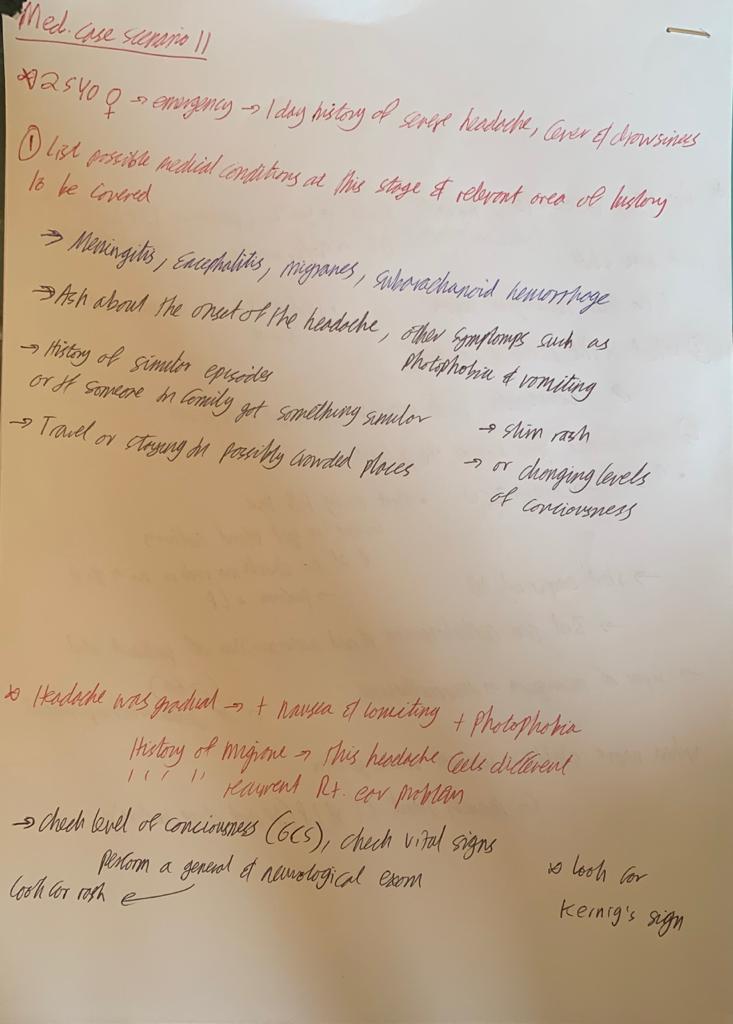 Med. case scenario 11
* 25 YO ♀ → emergency → 1 day history of severe headache, fever & drowsiness
① List possible medical conditions at this stage & relevant area of history
to be covered
→ Meningitis, Encephalitis, migranes, subarachanoid hemorrhage
→ Ask about the onset of the headache, other symptomps such as
photophobia & vomiting
→ History of similar episodes
or if someone in family got something similar
→ skin rash
→ Travel or staying in possibly crowded places
→ or changing levels
of conciousness
* Headache was gradual → + nausea & vomiting + photophobia
History of migrane → this headache feels different
" " " recurrent Rt. ear problem
→ check level of conciousness (GCS), check vital signs
perform a general & neurological exam
look for rash ←
* look for
Kernig's sign